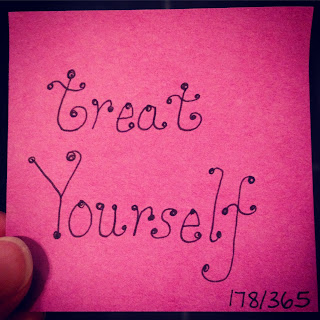 treat
Yourself
178/365